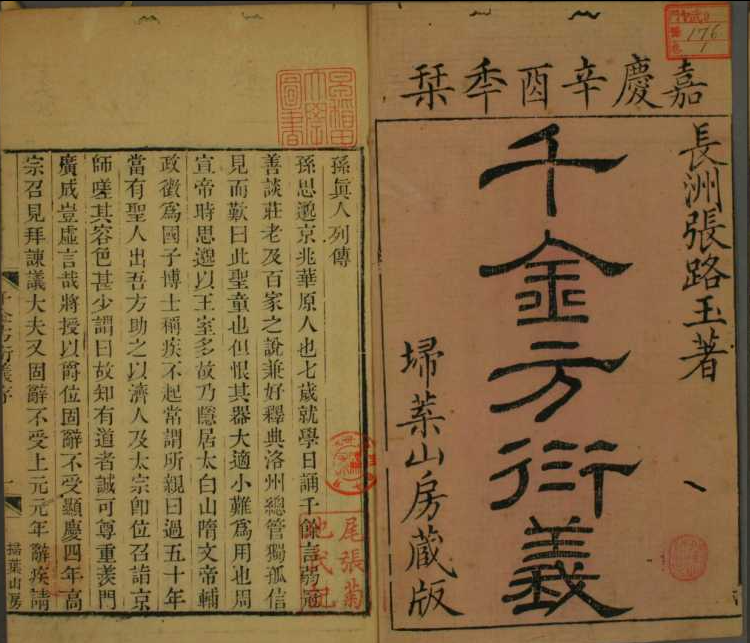 嘉慶辛酉季栞
長洲張路玉著
千金方衍義
埽葉山房藏版
176
1
孫眞人列傳
孫思邈京兆華原人也七歲就學日誦千餘言弱冠
善談莊老及百家之說兼好釋典洛州總管獨孤信
見而歎曰此聖童也但恨其器大適小難爲用也周
宣帝時思邈以王室多故乃隱居太白山隋文帝輔
政徵爲國子博士稱疾不起常謂所親曰過五十年
當有聖人出吾方助之以濟人及太宗卽位召詣京
師嗟其容色甚少謂曰故知有道者誠可尊重羨門
廣成豈虛言哉將授以爵位固辭不受顯慶四年高
宗召見拜諫議大夫又固辭不受上元元年辭疾請
千金方衍義序
一
掃葉山房
尾張菊